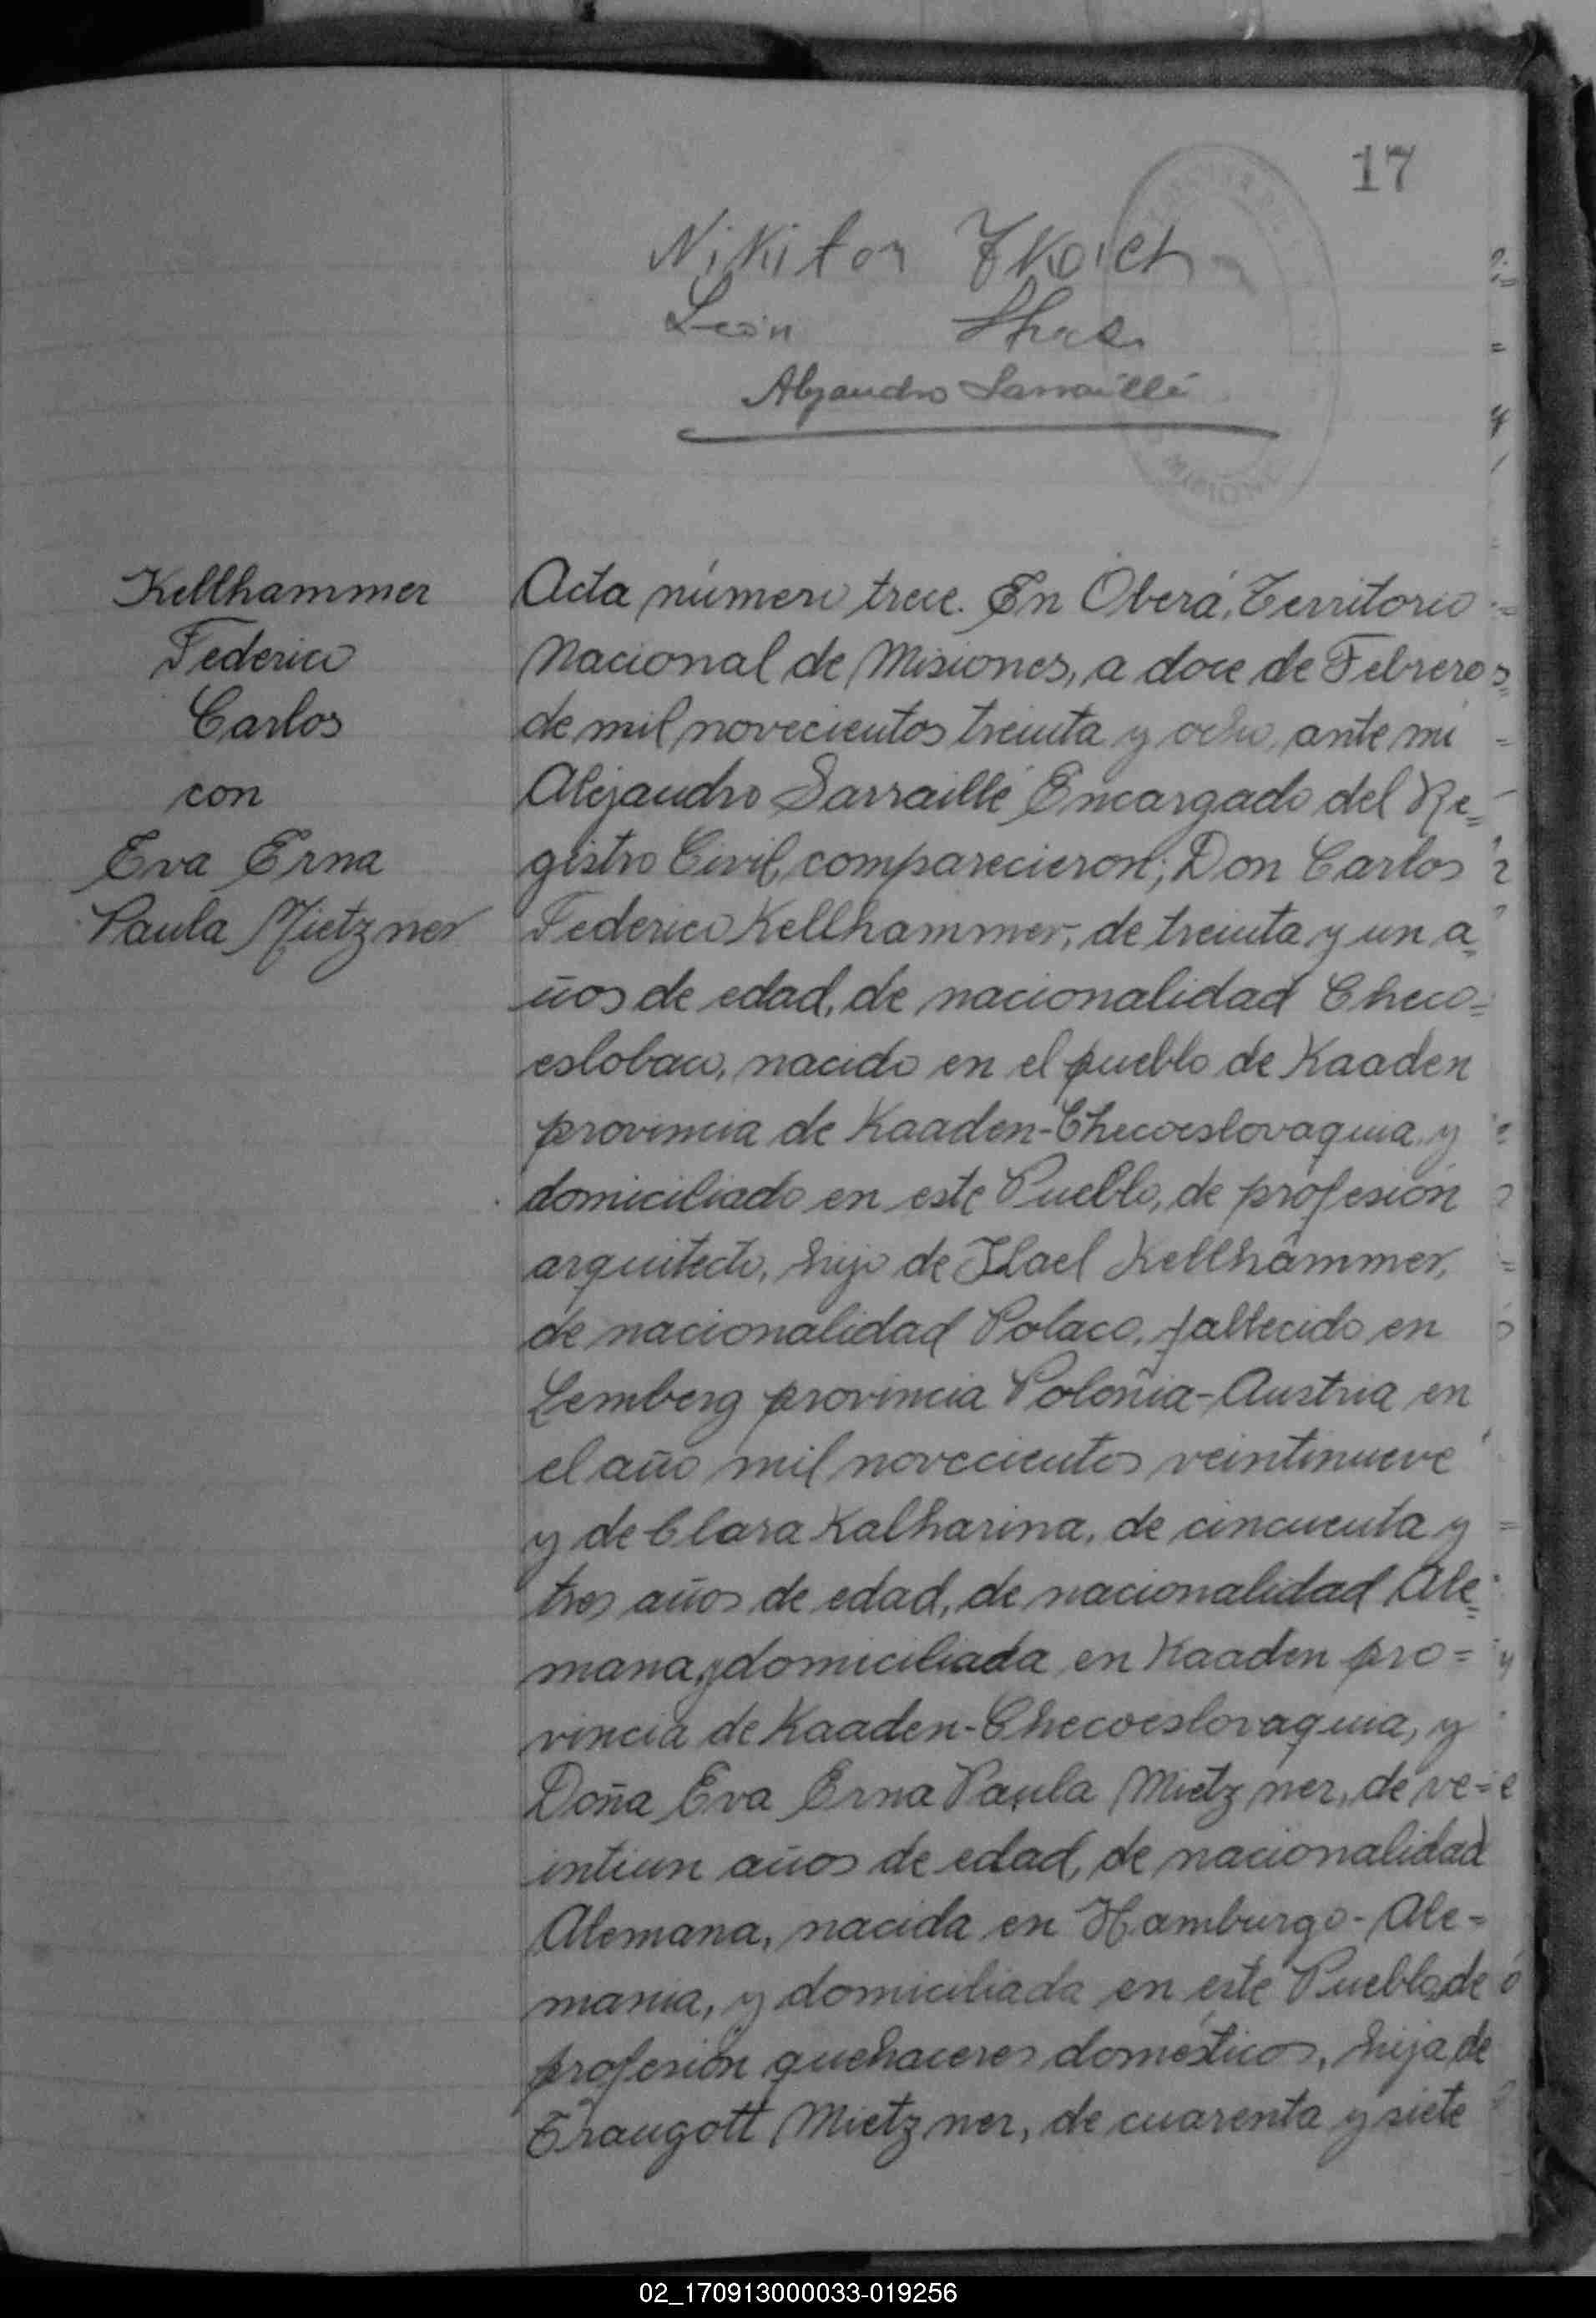 17
Nikitor
León
Alejandro Sarraillé
MISIONES
Kellhammer
Federico
Carlos
con
Eva Erna
Paula Mietzner
Acta número trece. En Oberá, Territorio
Nacional de Misiones, a doce de Febrero
de mil novecientos treinta y ocho, ante mi
Alejandro Sarraillé Encargado del Re=
gistro Civil, comparecieron; Don Carlos
Federico Kellhammer, de treinta y un a=
ños de edad, de nacionalidad Checo=
eslobaco, nacido en el pueblo de Kaaden
provincia de Kaaden-Checoeslovaquia y
domiciliado en este Pueblo, de profesión
arquitecto, hijo de Kellhammer,
de nacionalidad Polaco, fallecido en
Lemberg provincia Polonia-Austria en
el año mil novecientos veintinueve
y de Clara Katharina, de cincuenta y
tres años de edad, de nacionalidad Ale=
mana, y domiciliada en Kaaden pro=
vincia de Kaaden-Checoeslovaquia, y
Doña Eva Erna Paula Mietzner, de ve=
intiun años de edad, de nacionalidad
Alemana, nacida en Hamburgo-Ale=
mania, y domiciliada en este Pueblo, de
profesión quehaceres domésticos, hija de
Traugott Mietzner, de cuarenta y siete
02_170913000033-019256